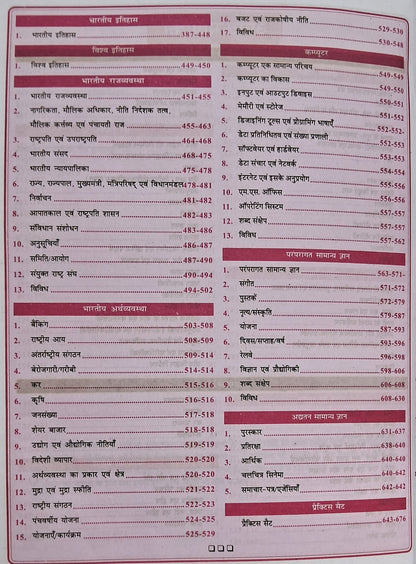 भारतीय इतिहास
1. भारतीय इतिहास 387-448
विश्व इतिहास
1. विश्व इतिहास 449-450
भारतीय राजव्यवस्था
1. भारतीय राजव्यवस्था 451-455
2. नागरिकता, मौलिक अधिकार, नीति निदेशक तत्व,
मौलिक कर्त्तव्य एवं पंचायती राज 455-463
3. राष्ट्रपति एवं उपराष्ट्रपति 464-468
4. भारतीय संसद 468-475
5. भारतीय न्यायपालिका 475-478
6. राज्य, राज्यपाल, मुख्यमंत्री, मंत्रिपरिषद् एवं विधानमंडल 478-481
7. निर्वाचन 481-482
8. आपातकाल एवं राष्ट्रपति शासन 482-483
9. संविधान संशोधन 483-486
10. अनुसूचियाँ 486-487
11. समिति/आयोग 487-490
12. संयुक्त राष्ट्र संघ 490-494
13. विविध 494-502
भारतीय अर्थव्यवस्था
1. बैंकिंग 503-508
2. राष्ट्रीय आय 508-509
3. अंतर्राष्ट्रीय संगठन 509-514
4. बेरोजगारी/गरीबी 514-514
5. कर 515-516
6. कृषि 516-517
7. जनसंख्या 517-518
8. शेयर बाजार 518-518
9. उद्योग एवं औद्योगिक नीतियाँ 519-519
10. विदेशी व्यापार 520-520
11. अर्थव्यवस्था का प्रकार एवं क्षेत्र 520-520
12. मुद्रा एवं मुद्रा स्फीति 521-522
13. राष्ट्रीय संगठन 522-523
14. पंचवर्षीय योजना 524-525
15. योजनाएँ/कार्यक्रम 525-529
16. बजट एवं राजकोषीय नीति 529-530
17. विविध 530-548
कम्प्यूटर
1. कम्प्यूटर एक सामान्य परिचय 549-549
2. कम्प्यूटर का विकास 549-550
3. इनपुट एवं आउटपुट डिवाइस 550-551
4. मेमोरी एवं स्टोरेज 551-552
5. डिजाइनिंग टूल्स एवं प्रोग्रामिंग भाषाएँ 552-552
6. डेटा प्रतिनिधित्व एवं संख्या प्रणाली 552-553
7. सॉफ्टवेयर एवं हार्डवेयर 553-554
8. डेटा संचार एवं नेटवर्क 554-554
9. इंटरनेट एवं इसके अनुप्रयोग 555-556
10. एम.एस. ऑफिस 556-556
11. ऑपरेटिंग सिस्टम 556-557
12. शब्द संक्षेप 557-557
13. विविध 557-562
परंपरागत सामान्य ज्ञान
1. परंपरागत सामान्य ज्ञान 563-571
2. संगीत 571-572
3. पुस्तकें 572-579
4. नृत्य/संस्कृति 579-587
5. योजना 587-593
6. दिवस/सप्ताह/वर्ष 593-596
7. रेलवे 596-598
8. विज्ञान एवं प्रौद्योगिकी 598-606
9. शब्द संक्षेप 606-608
10. विविध 608-630
अद्यतन सामान्य ज्ञान
1. पुरस्कार 631-637
2. प्रतिरक्षा 638-640
3. आर्थिक 640-640
4. चलचित्र सिनेमा 640-642
5. समाचार-पत्र/एजेंसियाँ 642-642
प्रैक्टिस सेट
प्रैक्टिस सेट 643-676